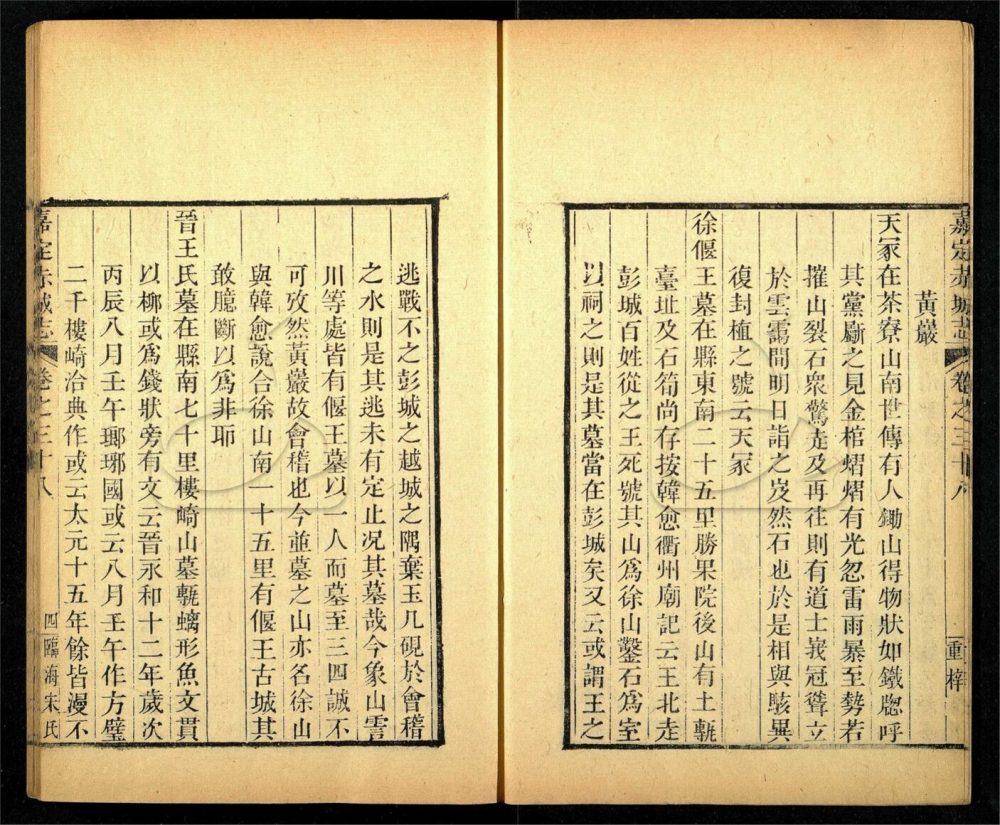 嘉定赤城志 卷之三十八 重梓
黃巖
天冢在茶寮山南世傳有人鋤山得物狀如鐵牎呼
其黨斸之見金棺熠熠有光忽雷雨暴至勢若
摧山裂石衆驚走及再往則有道士峩冠聳立
於雲靄間明日詣之岌然石也於是相與駭異
復封植之號云天冢
徐偃王墓在縣東南二十五里勝果院後山有土甎
臺址及石筍尚存按韓愈衢州廟記云王北走
彭城百姓從之王死號其山爲徐山鑿石爲室
以祠之則是其墓當在彭城矣又云或謂王之
逃戰不之彭城之越城之隅棄玉几硯於會稽
之水則是其逃未有定止况其墓哉今象山霅
川等處皆有偃王墓以一人而墓至三四誠不
可攷然黃巖故會稽也今並墓之山亦名徐山
與韓愈說合徐山南一十五里有偃王古城其
敢臆斷以爲非耶
晉王氏墓在縣南七十里樓崎山墓甎螭形魚文貫
以柳或爲錢狀旁有文云晉永和十二年歲次
丙辰八月壬午瑯琊國或云八月壬午作方璧
二千樓崎治典作或云太元十五年餘皆漫不
嘉定赤城志 卷之三十八 四 臨海宋氏